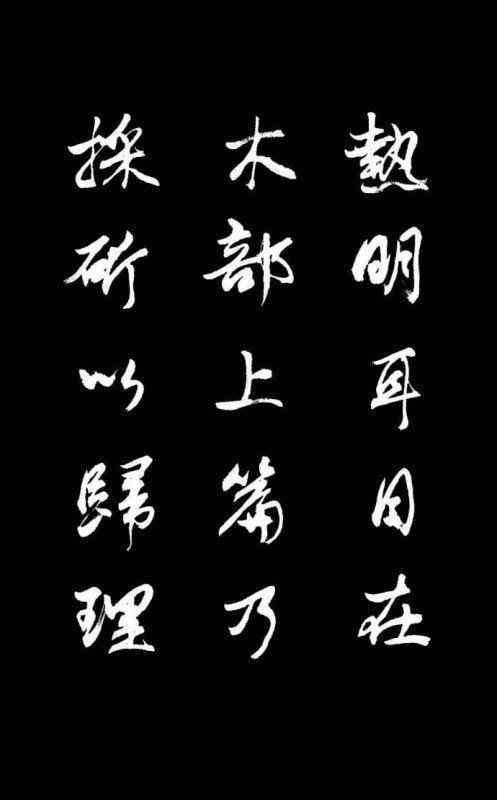 熱明耳目在
木部上篇乃
採斫以歸理